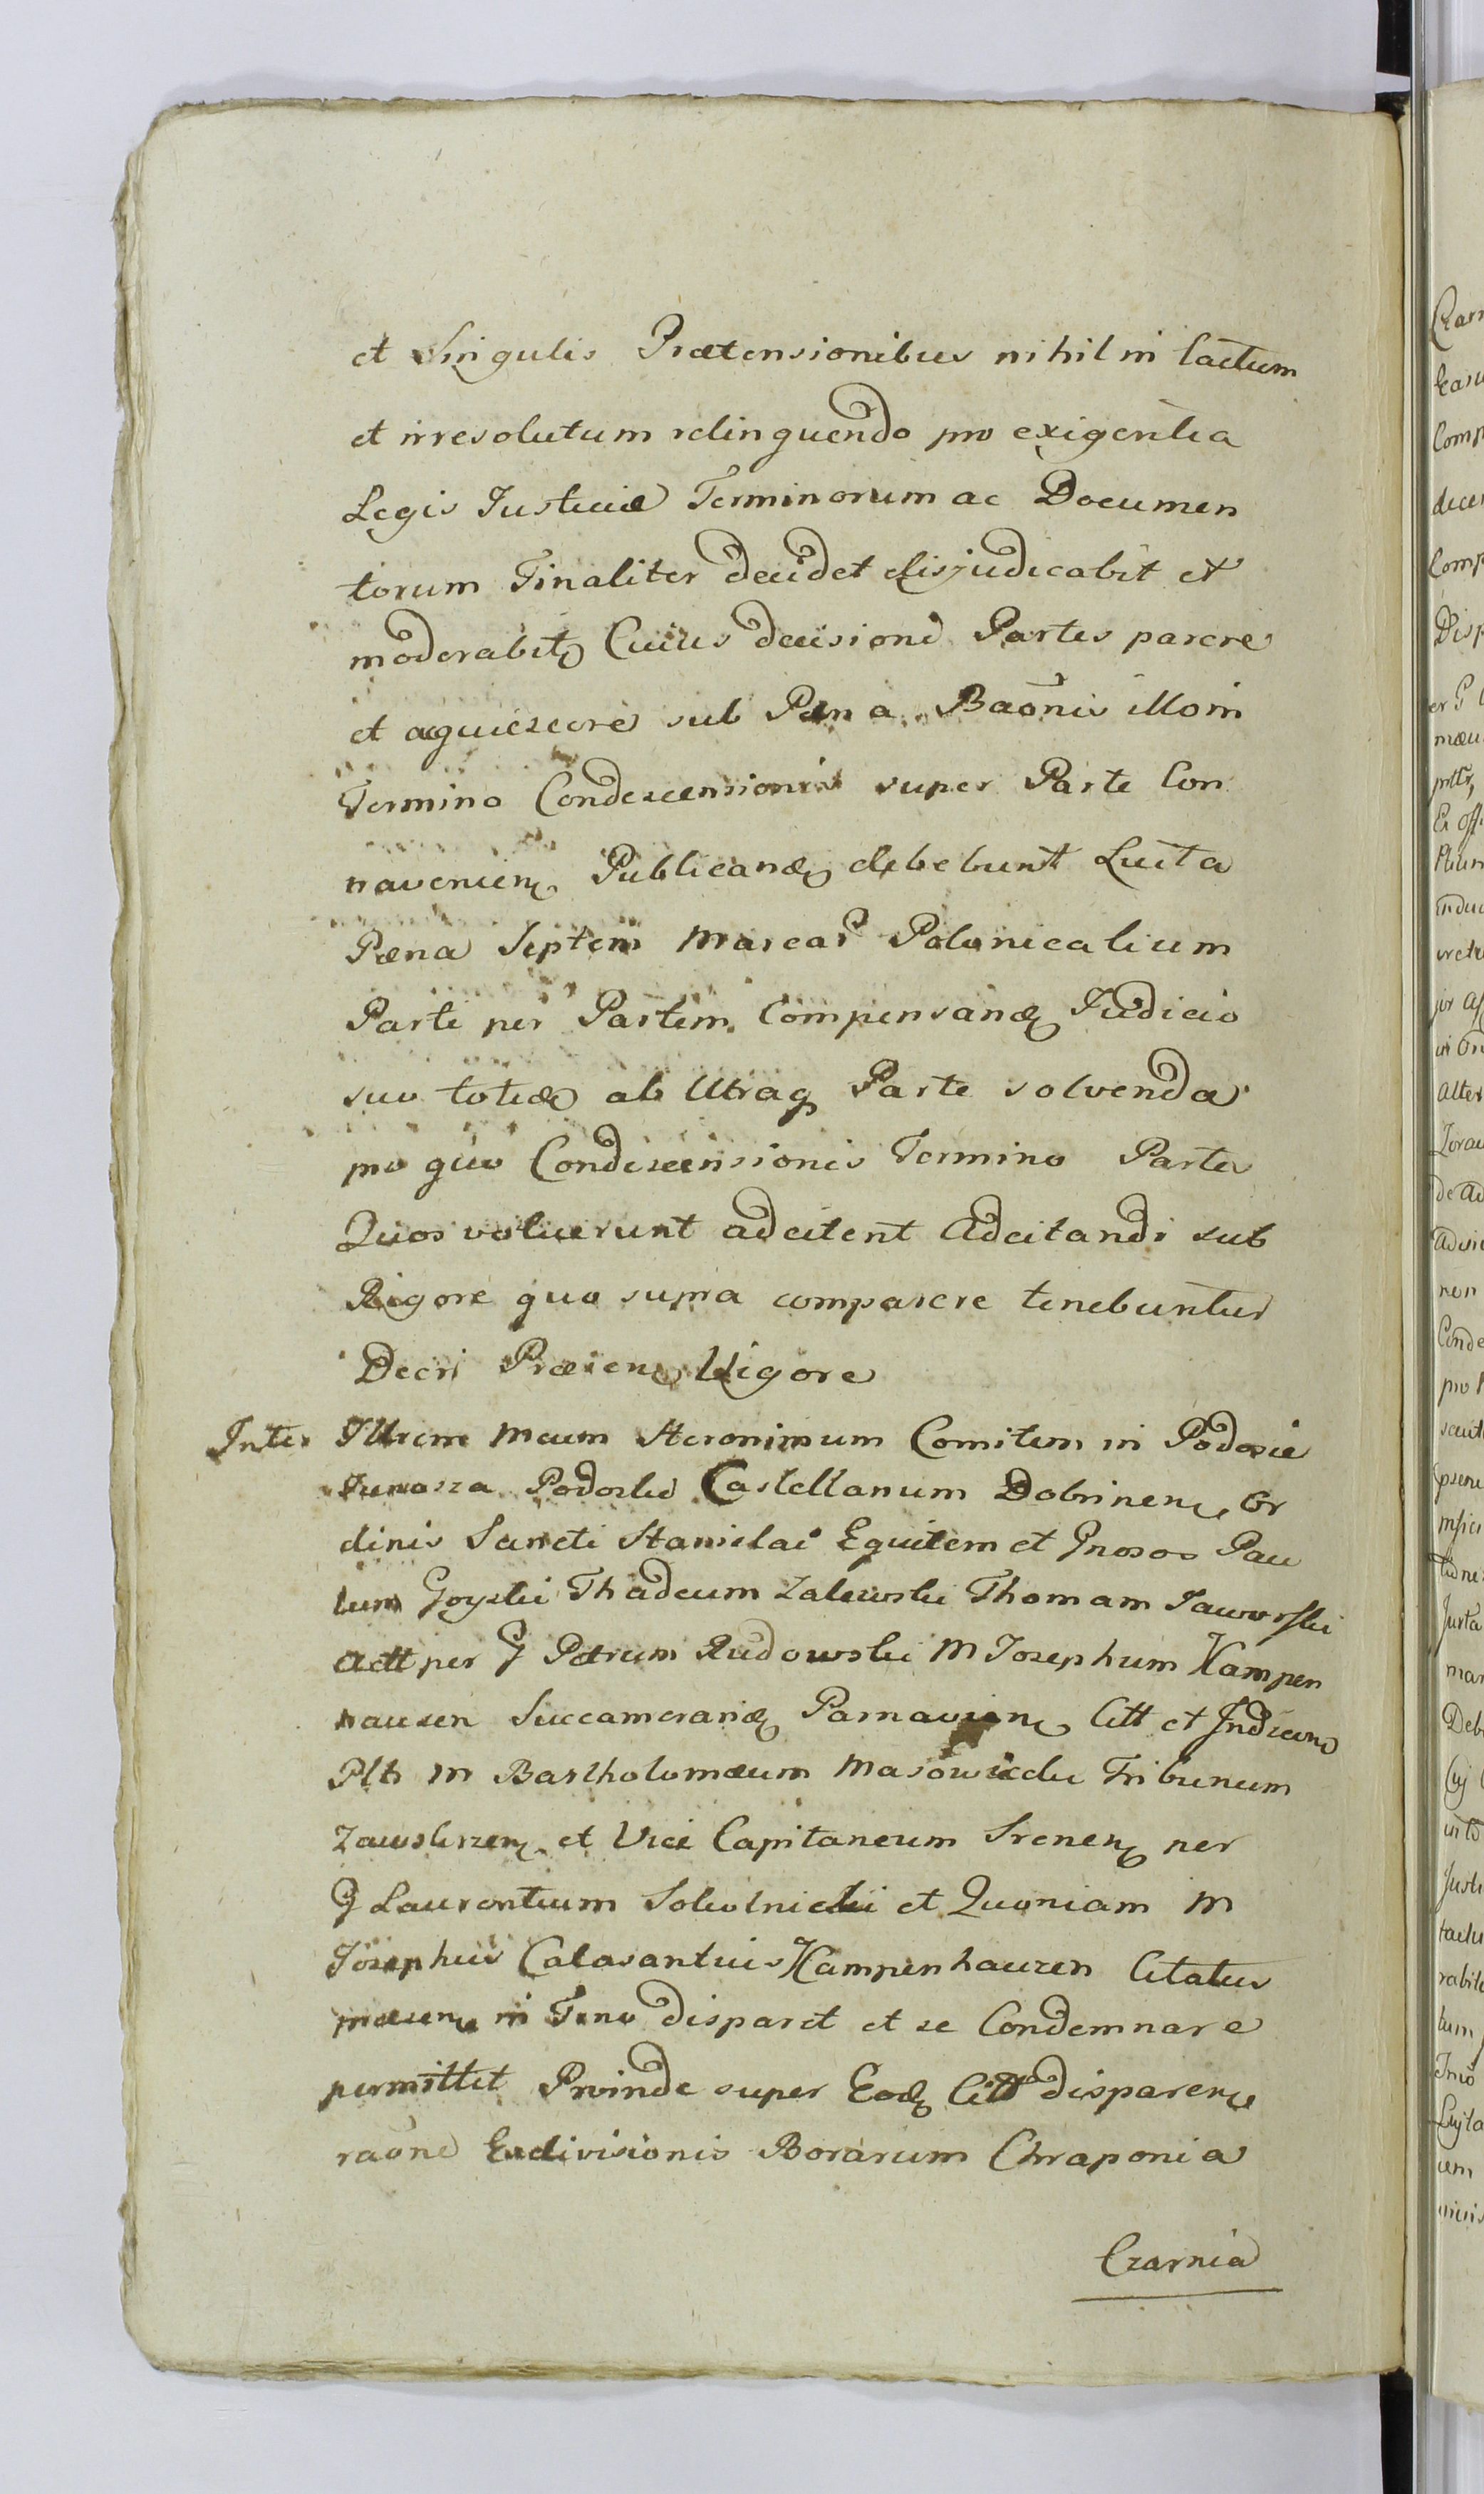 et Singulis Prætensionibus nihil in tactum
et irresolutum relinquendo pro exigentia
Legis Justitiæ Terminorum ac Documen
torum Finaliter decidet disjudicabit et
moderabit Cuius decisioni Partes parere
et acquiescere sub Pœna Baõnis illoin
Termino Condescensionis super Parte Con
travenien Publicand debebunt Luita
Pœna Septem Marcar Polonicalium
Parti per Partem Compensand Judicio
suo totid ab Utraq Parte solvenda
pro quo Condescensionis Termino Partes
Quos voluerunt adcitent Adcitandi sub
Rigore quo supra comparere tenebuntur
Decri Præsen Vigore
Inter Illrem Meum Heronimum Comitem in Podosie
Junosza Podoski Castellanum Dobrinen Or
dinis Sancti Stanislai Equitem et Gnosos Pau
lum Goyski Thadeum Zalewski Thomam Jaworski
Actt per G Petrum Rudowski M Josephum Kampen
hausen Succamerarid Parnavien Citt et
Pltt M Bartholomæum Masowiecki Tribunum
Zawskrzen et Vice Capitaneum Srenen per
G Laurentium Sokolnicki et Quoniam M
Josephus Calasantius Kampenhauzen Citatus
præsen in Tmno disparet et se Condemnare
permittet Proinde super Eod Citt disparen
raõne Exdivisionis Borarum Chraponia
Czarnia